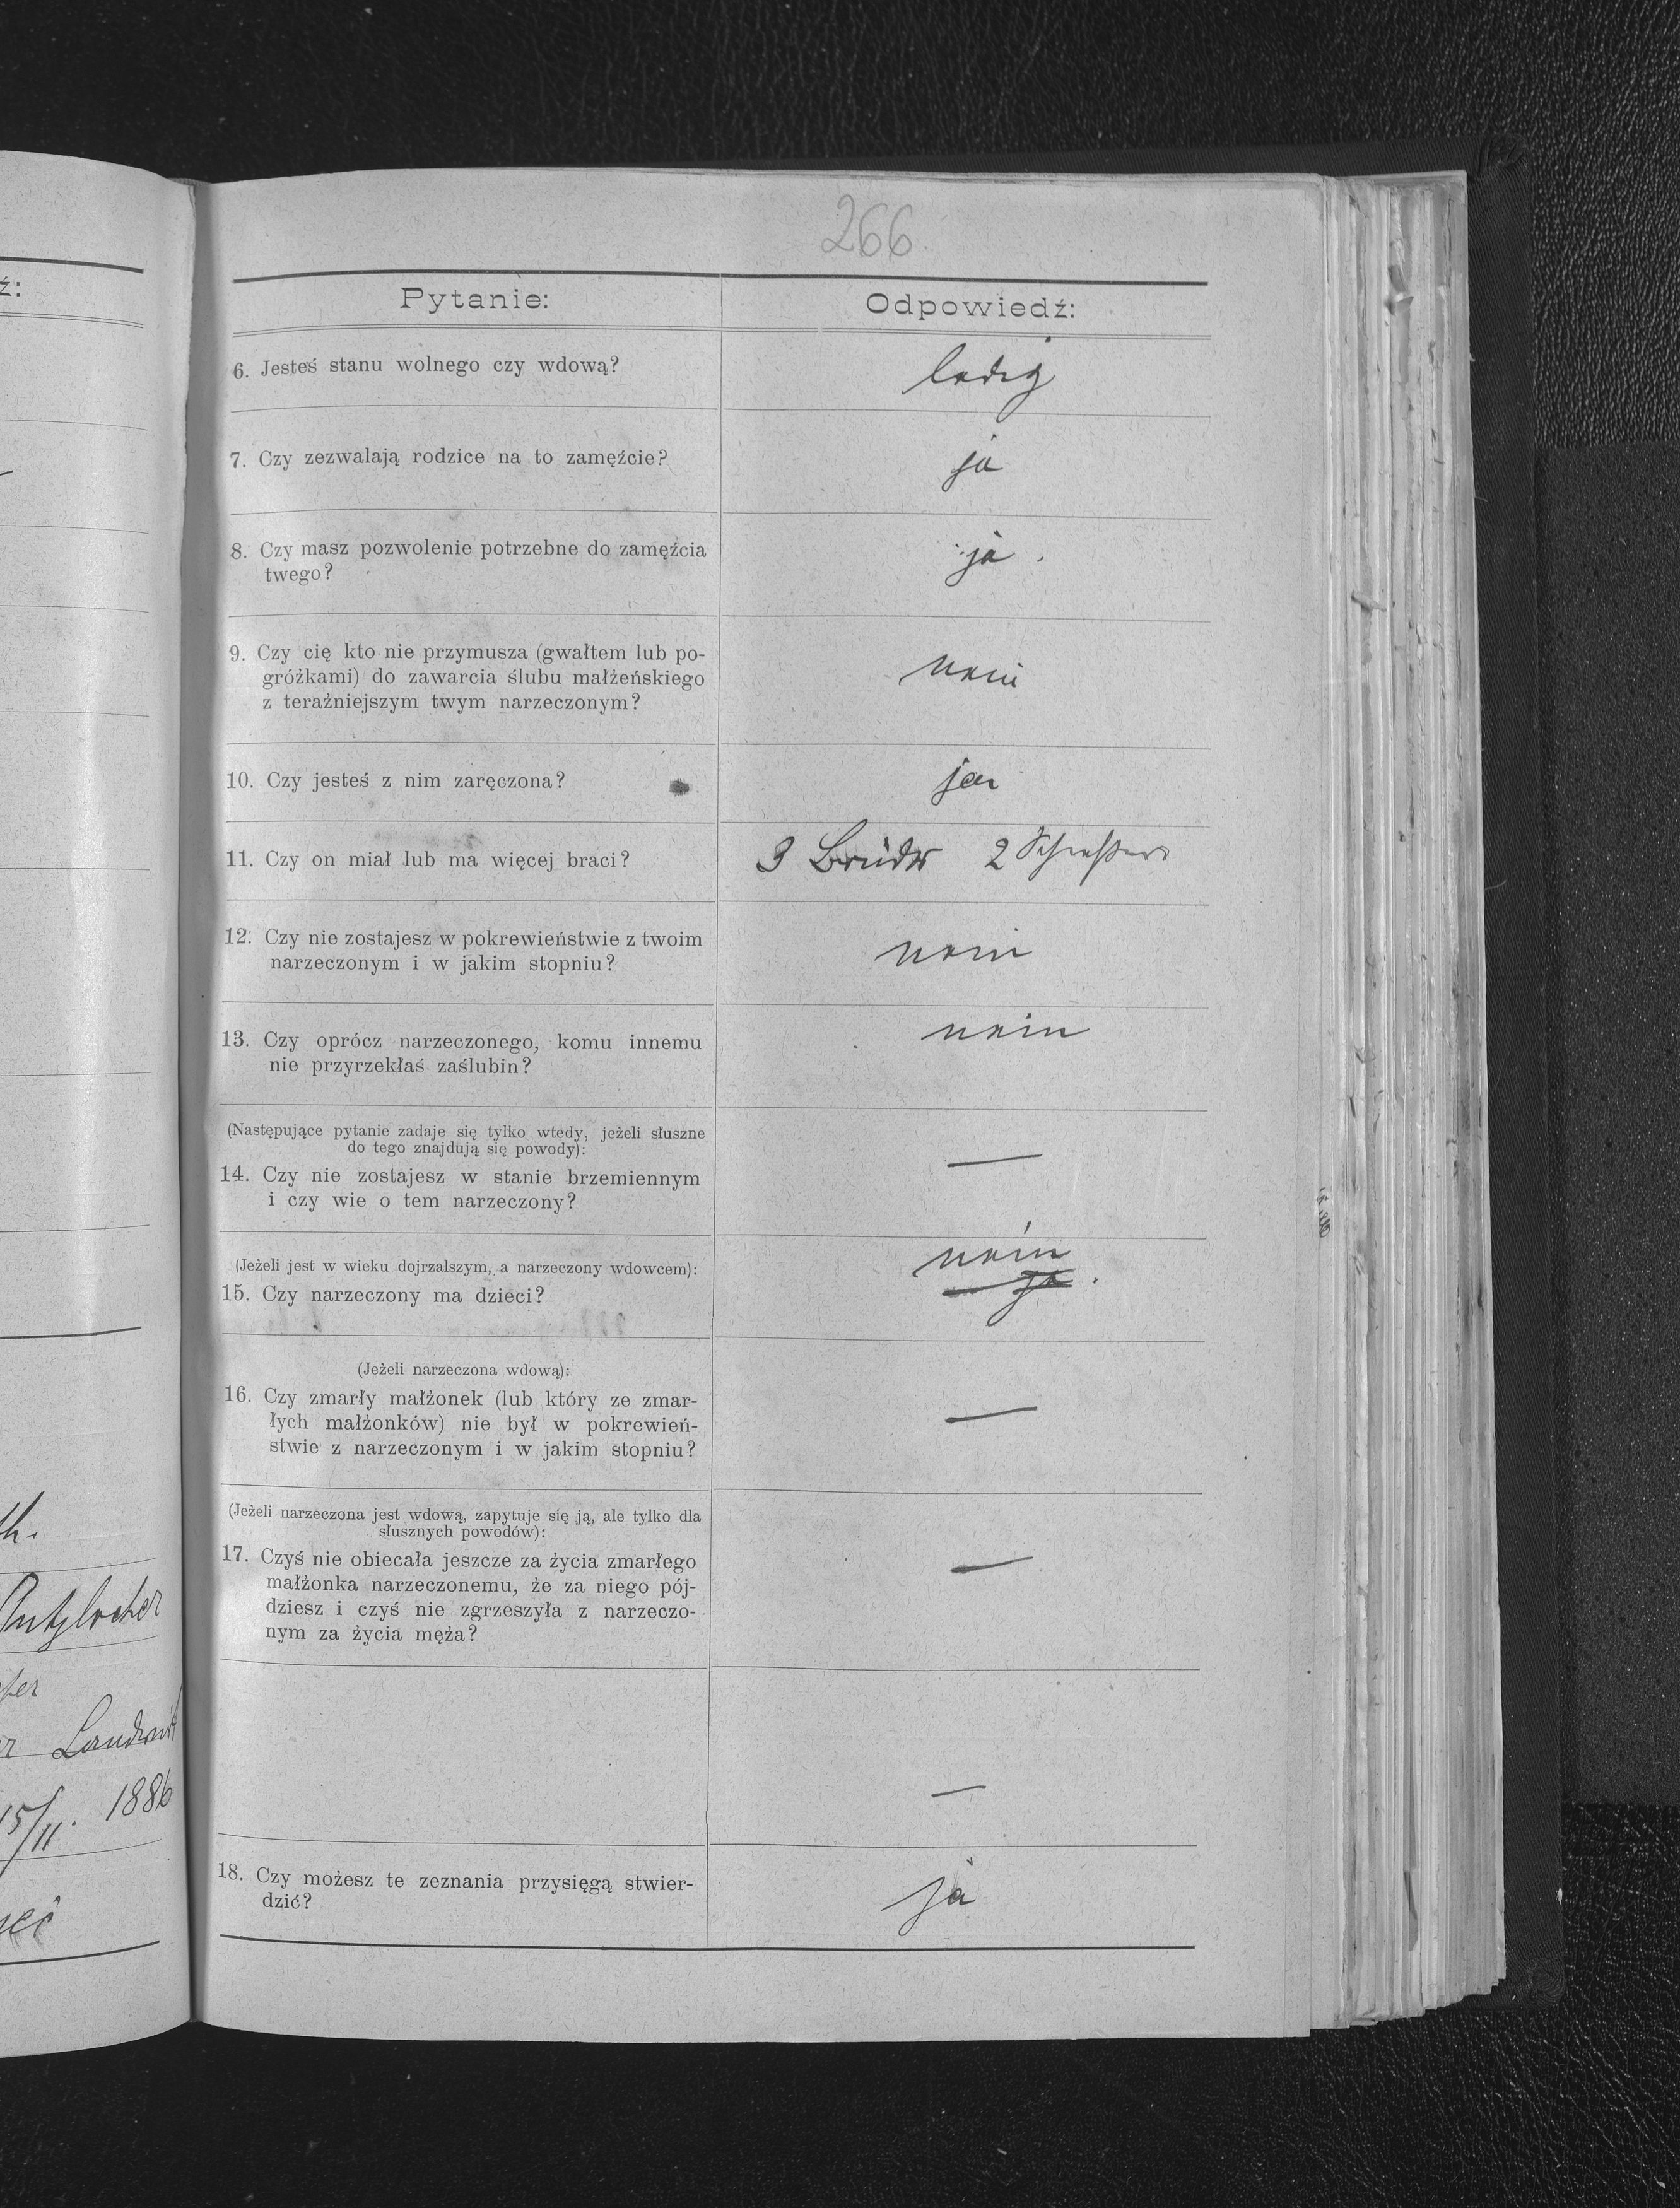 ź:
th.
Putzlocher
ter
r Landwirt
15/II. 1886
266.
Pytanie:
Odpowiedź:
6. Jesteś stanu wolnego czy wdową?
ledig
7. Czy zezwalają rodzice na to zamęźcie?
ja
8. Czy masz pozwolenie potrzebne do zamęźcia
twego?
ja.
9. Czy cię kto nie przymusza (gwałtem lub po-
gróżkami) do zawarcia ślubu małżeńskiego
z teraźniejszym twym narzeczonym?
nein
10. Czy jesteś z nim zaręczona?
ja
11. Czy on miał lub ma więcej braci?
3 Brüder 2 Schwestern
12. Czy nie zostajesz w pokrewieństwie z twoim
narzeczonym i w jakim stopniu?
nein
13. Czy oprócz narzeczonego, komu innemu
nie przyrzekłaś zaślubin?
nein
(Następujące pytanie zadaje się tylko wtedy, jeżeli słuszne
do tego znajdują się powody):
14. Czy nie zostajesz w stanie brzemiennym
i czy wie o tem narzeczony?
—
(Jeżeli jest w wieku dojrzalszym, a narzeczony wdowcem):
15. Czy narzeczony ma dzieci?
nein
ja.
(Jeżeli narzeczona wdową):
16. Czy zmarły małżonek (lub który ze zmar-
łych małżonków) nie był w pokrewień-
stwie z narzeczonym i w jakim stopniu?
—
(Jeżeli narzeczona jest wdową, zapytuje się ją, ale tylko dla
słusznych powodów):
17. Czyś nie obiecała jeszcze za życia zmarłego
małżonka narzeczonemu, że za niego pój-
dziesz i czyś nie zgrzeszyła z narzeczo-
nym za życia męża?
—
—
18. Czy możesz te zeznania przysięgą stwier-
dzić?
ja